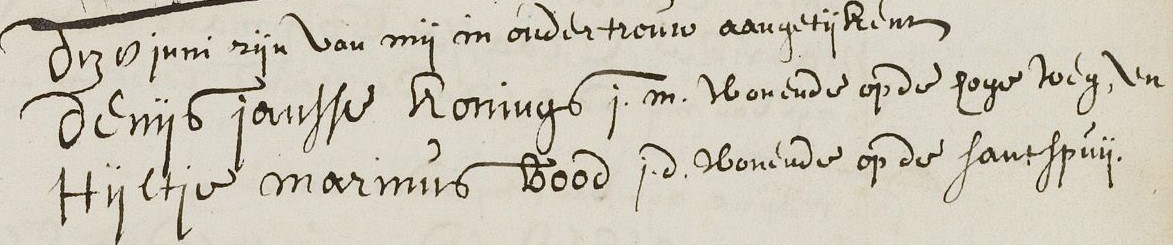 juni zijn van mij in ondertrouw aangetijkent
Denijs jansse Konings j. m. wonende op de hoge weg, en
Hijltje marinus Bood j.d. wonende op de santspuij.